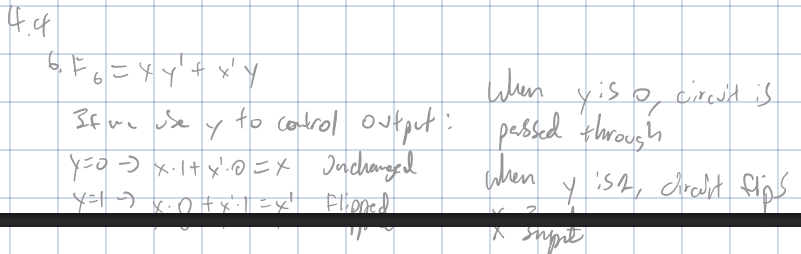 4.4
6. F₆ = xy' + x'y
If we use y to control output:
y=0 → x·1 + x'·0 = x Unchanged
y=1 → x·0 + x'·1 = x' Flipped
When y is 0, circuit is
passed through
When y is 1, circuit flips
x input